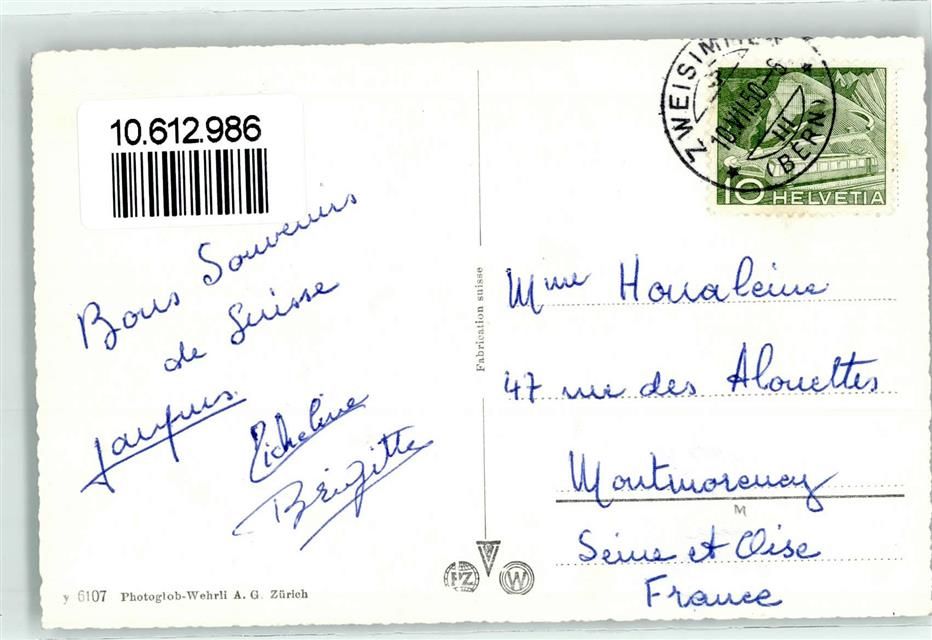 10.612.986
Bons Souvenirs
de Suisse
Jacques
Micheline
Brigitte
Fabrication suisse
ZWEISIMMEN
10.VII.50-8
(BERN)
10 HELVETIA
Mme
47 rue des Alouettes
Montmorency
M
Seine et Oise
France
PZ W
y 6107 Photoglob-Wehrli A. G. Zürich